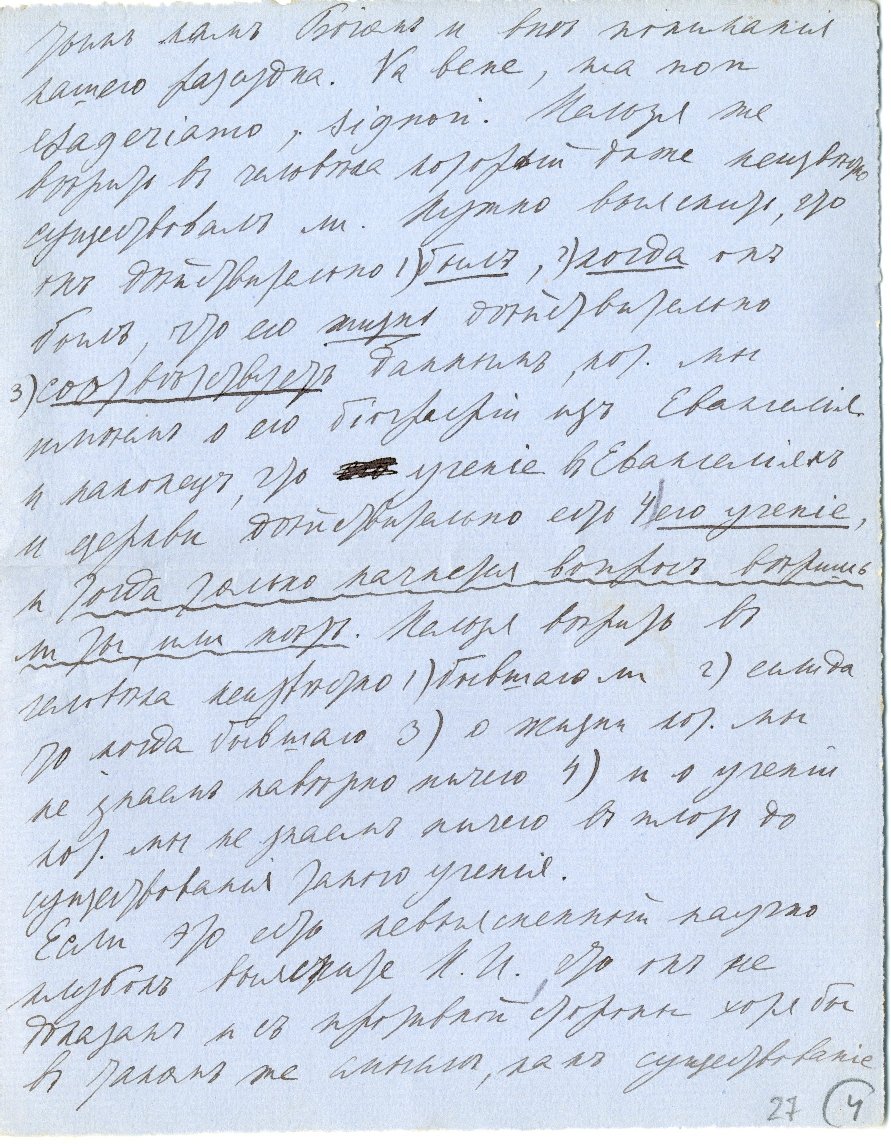 нымъ намъ Богомъ и внѣ пониманія
нашего разсудка. Va bene, ma non
esageriamo, signori. Нельзя же
вѣрить въ человѣка который даже неизвѣстно
существовалъ ли. Нужно выяснить, что
онъ дѣйствительно 1) былъ, 2) когда онъ
былъ, что его жизнь дѣйствительно
3) соотвѣтствуетъ даннымъ, кот. мы
имѣемъ о его біографіи изъ Евангелія
и наконецъ, что ученіе въ Евангеліяхъ
и церкви дѣйствительно есть 4) его ученіе,
и тогда только начнется вопросъ вѣришь
ли ты или нѣтъ. Нельзя вѣрить въ
человѣка неизвѣстно 1) бывшаго ли 2)
то когда бывшаго 3) о жизни кот. мы
не знаемъ навѣрно ничего 4) и о ученіи
кот. мы не знаемъ ничего въ смыслѣ до
существованія такого ученія.
Если это есть невыясненный научно
клубокъ выясните М. И. что онъ не
доказанъ и съ противной стороны хотя бы
въ такомъ же смыслѣ, какъ существованіе
27 4